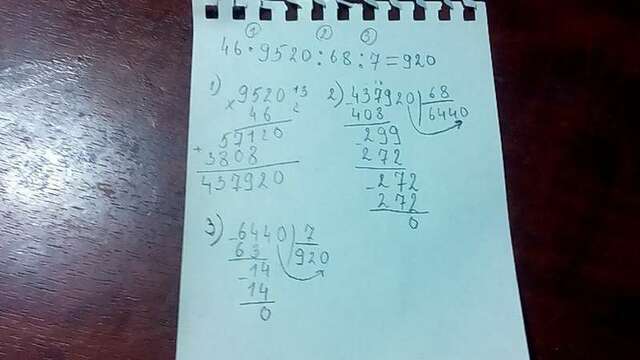 ① ② ③
46·9520:68:7=920
1) ×9520 13
46 2
57120
+3808
437920
2) -437920|68
408 6440
-299
272
-272
272
0
3) -6440|7
63 920
-14
14
0